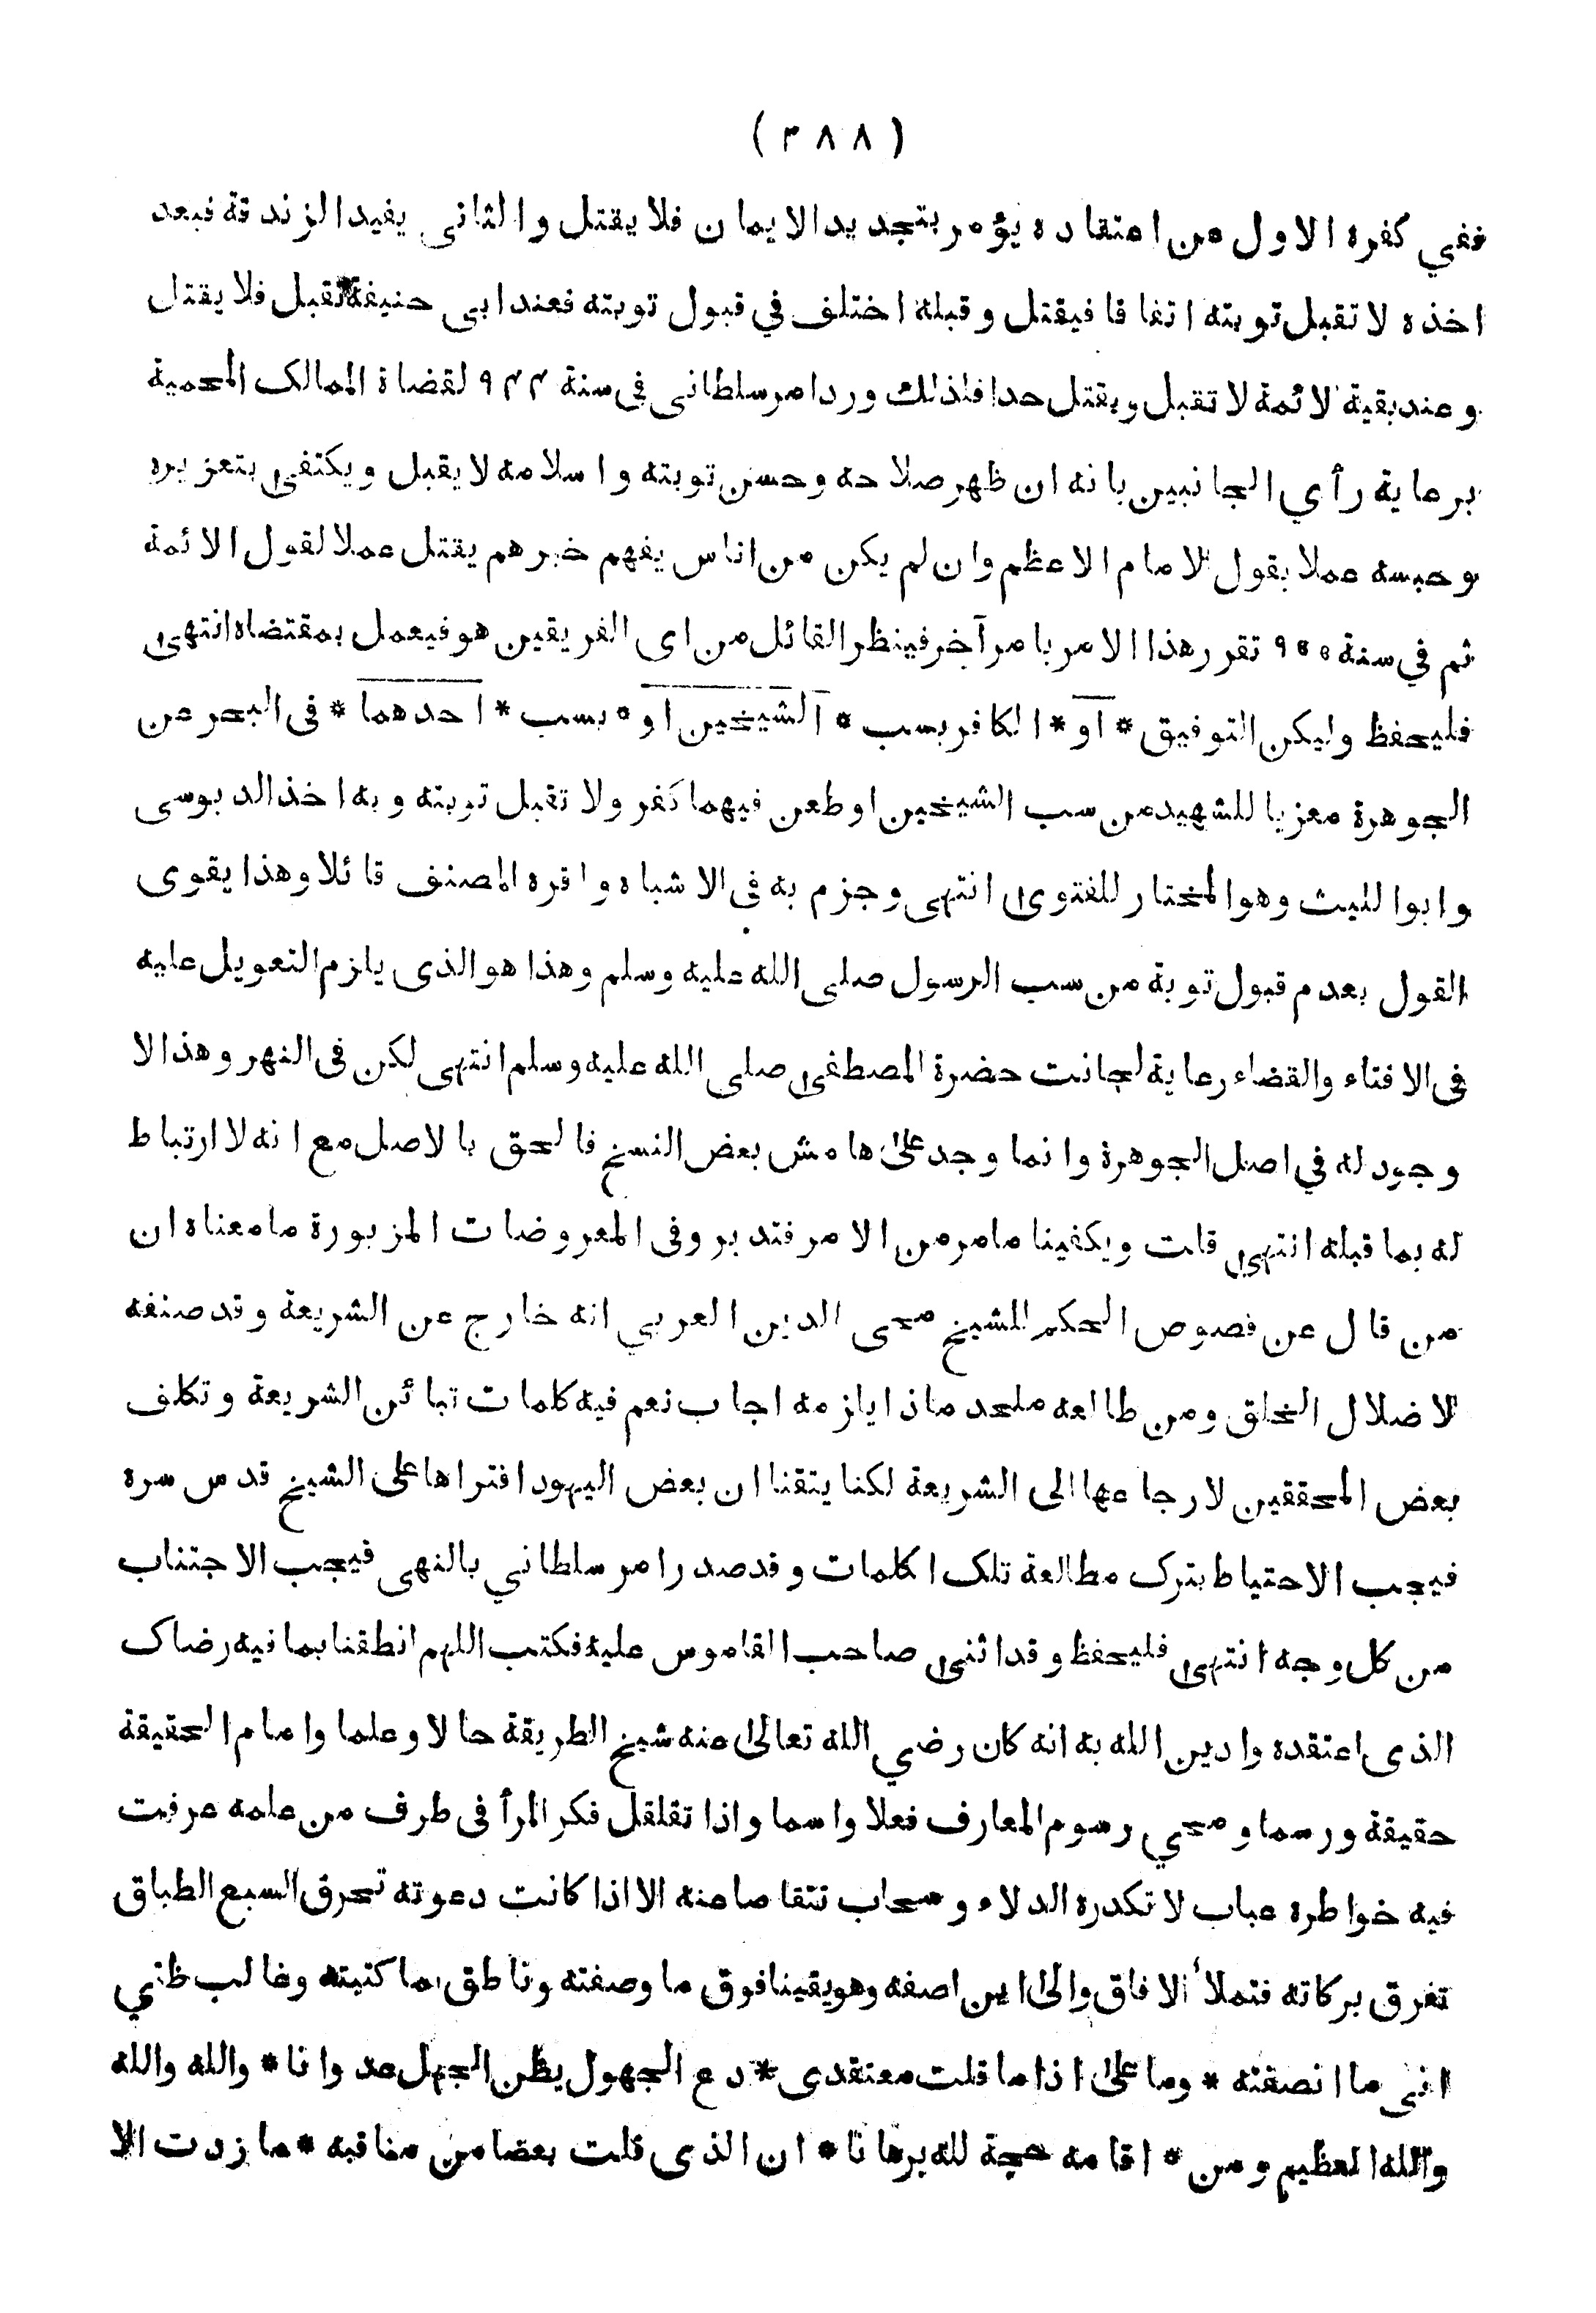 ( ٣٨٨ )
ففي كفره الاول من اعتقاده يؤمر بتجديد الايمان فلا يقتل والثانى يفيد الزندقة فبعد
اخذه لا تقبل توبته اتفاقا فيقتل وقبله اختلف في قبول توبته فعند ابى حنيفة تقبل فلا يقتل
وعند بقية الائمة لا تقبل ويقتل حدا فلذلك ورد امر سلطانى فى سنة ٩٤٤ لقضاة الممالك المحمية
برعاية رأي الجانبين بانه ان ظهر صلاحه وحسن توبته واسلامه لا يقبل ويكتفى بتعزيره
وحبسه عملا بقول الامام الاعظم وان لم يكن من اناس يفهم خبرهم يقتل عملا لقول الائمة
ثم في سنة ٩٥٥ تقرر هذا الامر بامر آخر فينظر القائل من اى الفريقين هو فيعمل بمقتضاه انتهى
فليحفظ وليكن التوفيق * او * الكافر بسب * الشيخين او * بسب * احدهما * فى البحر عن
الجوهرة معزيا للشهيد من سب الشيخين او طعن فيهما كفر ولا تقبل توبته وبه اخذ الدبوسى
وابوا لليث وهو المختار للفتوى انتهى وجزم به فى الاشباه واقره المصنف قائلا وهذا يقوى
القول بعدم قبول توبة من سب الرسول صلى الله عليه وسلم وهذا هو الذى يلزم التعويل عليه
فى الافتاء والقضاء رعاية لجانت حضرة المصطفى صلى الله عليه وسلم انتهى لكن فى النهر وهذا لا
وجود له في اصل الجوهرة وانما وجد على هامش بعض النسخ فالحق بالاصل مع انه لا ارتباط
له بما قبله انتهى قلت ويكفينا مامر من الامر فتدبر وفى المعروضات المزبورة ما معناه ان
من قال عن فصوص الحكم للشيخ محى الدين العربي انه خارج عن الشريعة وقد صنفه
لاضلال الخلق ومن طالعه ملحد ماذا يلزمه اجاب نعم فيه كلمات تبائن الشريعة وتكلف
بعض المحققين لارجاعها الى الشريعة لكنا يتقنا ان بعض اليهود افتراها على الشيخ قدس سره
فيجب الاحتياط بترك مطالعة تلك اكلمات وقد صدر امر سلطاني بالنهى فيجب الاجتناب
من كل وجه انتهى فليحفظ وقد اثنى صاحب القاموس عليه فكتب اللهم انطقنا بما فيه رضاك
الذى اعتقده وادين الله به انه كان رضي الله تعالى عنه شيخ الطريقة حالا وعلما وامام الحقيقة
حقيقة ورسما ومحيي رسوم المعارف فعلا واسما واذا تقلقل فكر المرأ فى طرف من علمه عرفت
فيه خواطره عباب لا تكدره الدلاء وسحاب تتقاصا عنه الا اذا كانت دعوته تحرق السبع الطباق
تغرق بركاته فتملأ الافاق والى اين اصفه وهو يقينا فوق ما وصفته وناطق بما كتبته وغالب ظني
انى ما انصفته * وما على اذا ما قلت معتقدى * دع الجهول يظن الجهل عدوانا * والله والله
والله العظيم ومن * اقامه حجة لله برهانا * ان الذى قلت بعضا من مناقبه * ما زدت الا